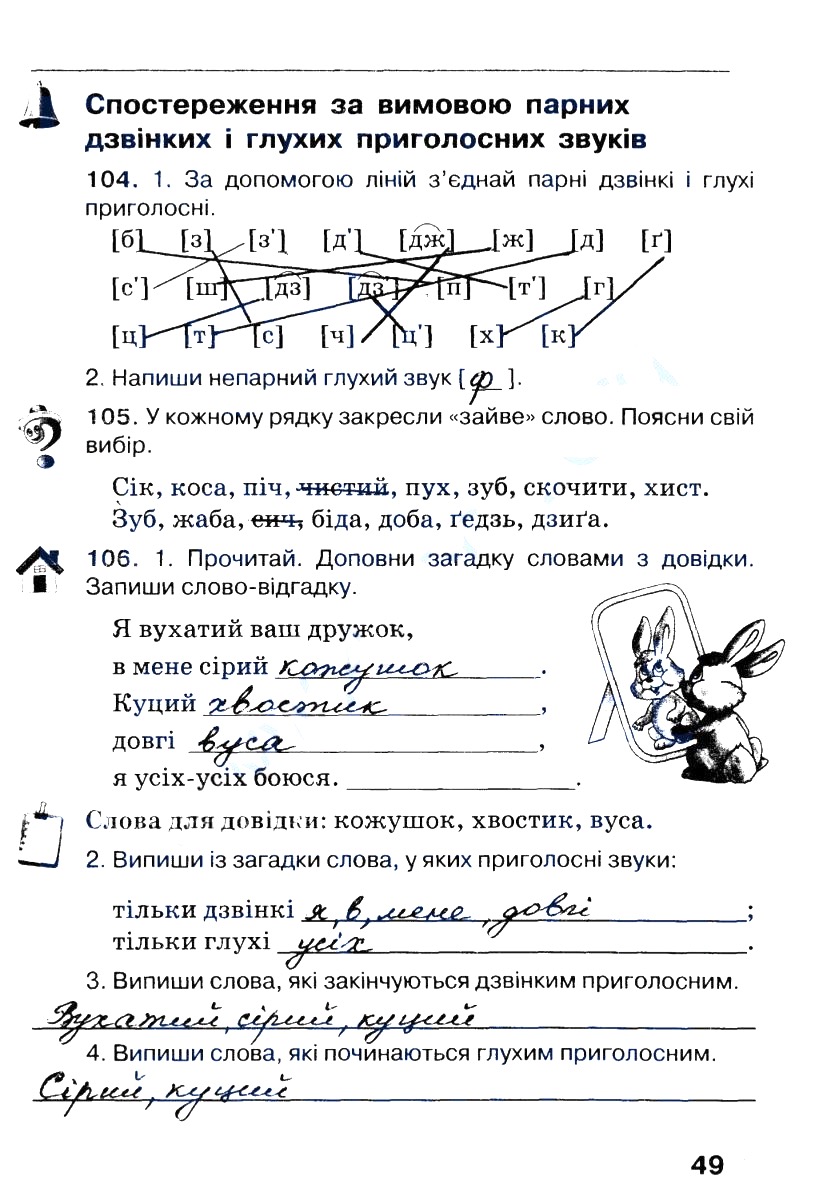 Спостереження за вимовою парних
дзвінких і глухих приголосних звуків
104. 1. За допомогою ліній з’єднай парні дзвінкі і глухі
приголосні.
[б] [з] [з'] [д'] [дж] [ж] [д] [ґ]
[с'] [ш] [дз] [дз'] [п] [т'] [г]
[ц] [т] [с] [ч] [ц'] [х] [к]
2. Напиши непарний глухий звук [ф].
105. У кожному рядку закресли «зайве» слово. Поясни свій
вибір.
Сік, коса, піч, чистий, пух, зуб, скочити, хист.
Зуб, жаба, сич, біда, доба, ґедзь, дзиґа.
106. 1. Прочитай. Доповни загадку словами з довідки.
Запиши слово-відгадку.
Я вухатий ваш дружок,
в мене сірий кожушок.
Куций хвостик,
довгі вуса,
я усіх-усіх боюся. .
Слова для довідки: кожушок, хвостик, вуса.
2. Випиши із загадки слова, у яких приголосні звуки:
тільки дзвінкі я, в, мене, довгі;
тільки глухі усіх.
3. Випиши слова, які закінчуються дзвінким приголосним.
Вухатий, сірий, куций
4. Випиши слова, які починаються глухим приголосним.
Сірий, куций
49